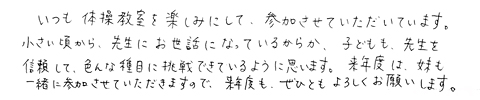 いつも 体操教室を楽しみにして、参加させていただいています。
小さい頃から、先生にお世話になっているからか、子どもも、先生を
信頼して、色んな種目に挑戦できているように思います。来年度は、妹も
一緒に参加させていただきますので、来年度も、ぜひともよろしくお願いします。